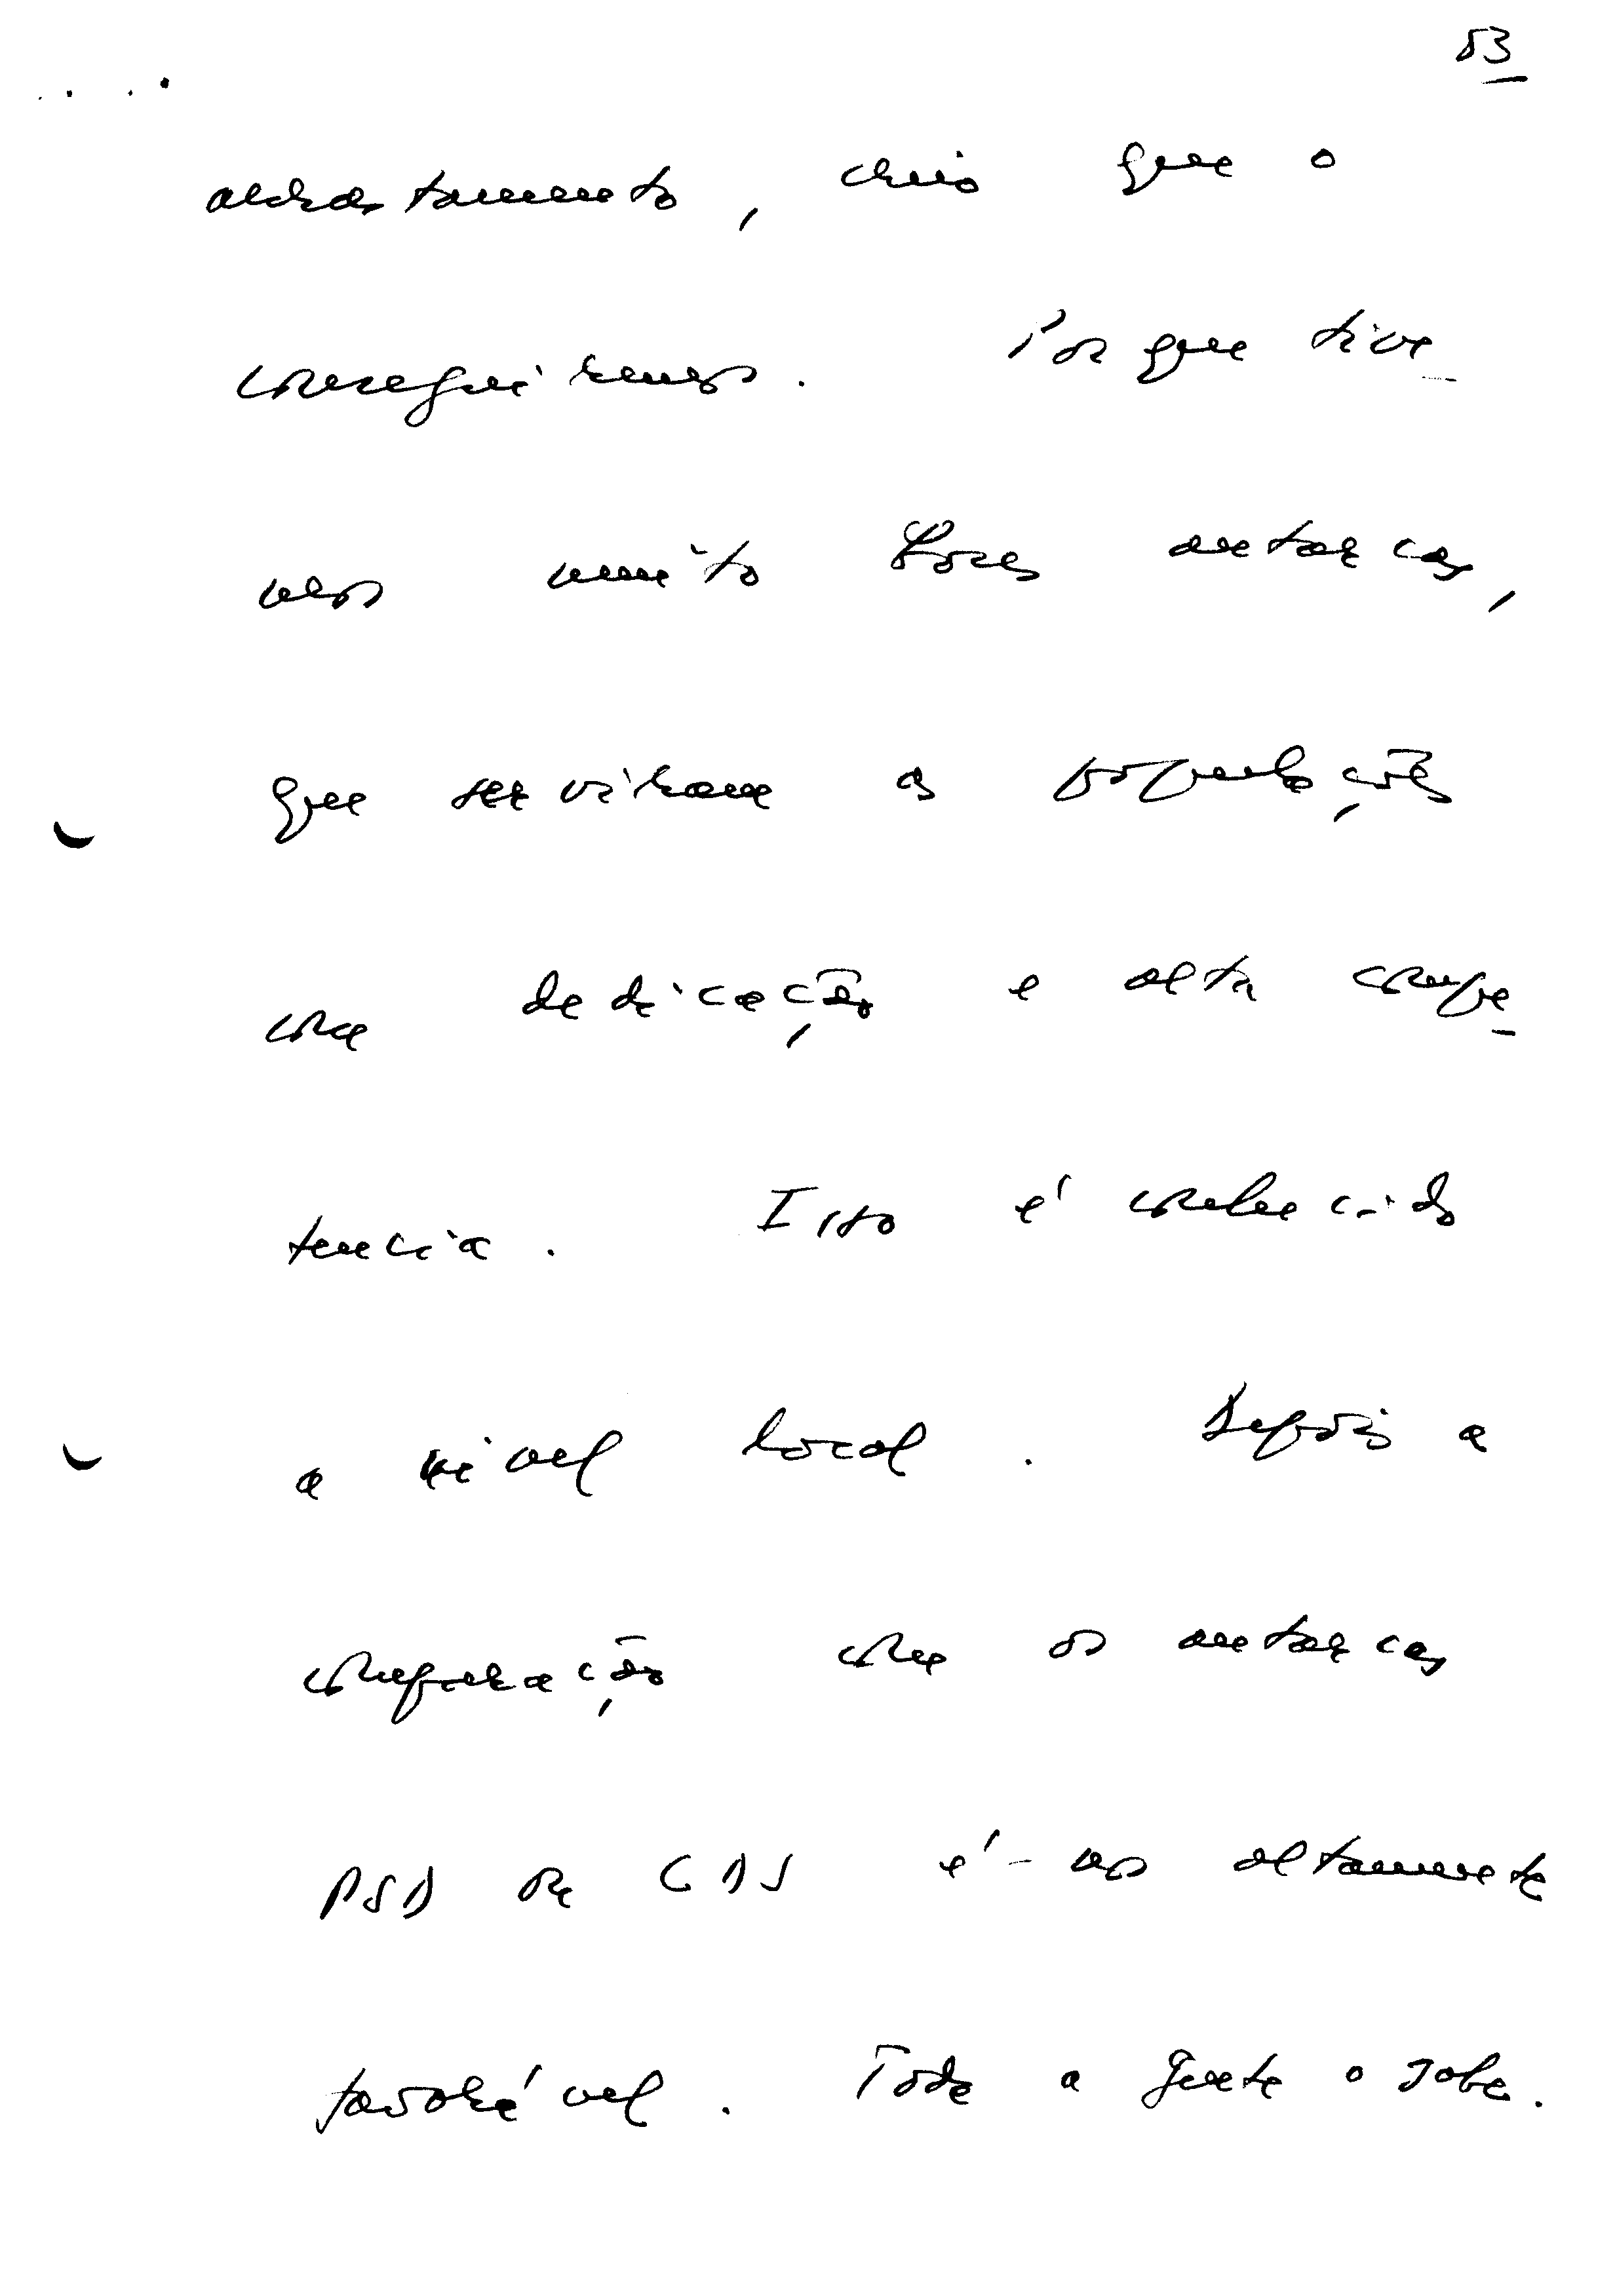 53
arrastamento, creio que o
conseguiremos. Porque tive_
mos muito boas autarcas,
que serviram as populações
com dedicação e alta compe_
tencia. Isto é conhecido
a nivel local. Depois a
comparação com os autarcas
PSD ou CDS é-nos altamente
favorável. Toda a gente o sabe.